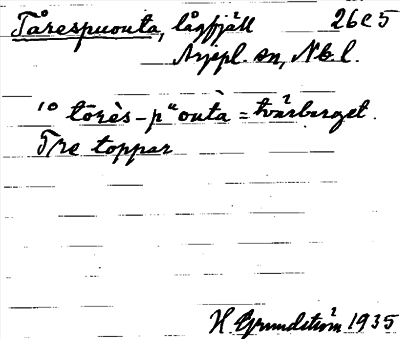 Tårespuouta, lågfjäll 26C5
Arjepl. sn, Nb. l.
10 tōrès-pᵘoutà = tvärberget.
Tre toppar
H. Grundström 1935